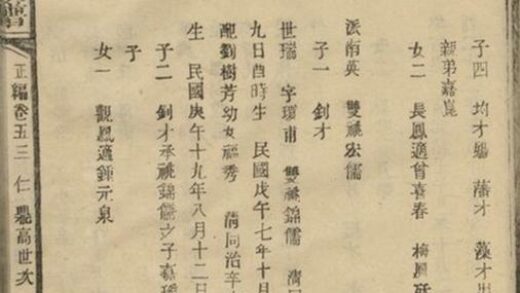 子四 均才殤 藩才 藻才出
親弟嘉崑
女二 長鳳適曾喜春 梅鳳
派南英 雙祧宏儒
子一 釗才
世瑞 字瓊甫 雙祧錦儒 清
九日酉時生 民國戊午七年十月
配劉樹芳幼女福秀 清同治辛
生 民國庚午十九年八月十二日
子二 釗才承祧錦儒之子嘉
子
女一 觀鳳適鍾元泉
正編卷五三 仁 高世次